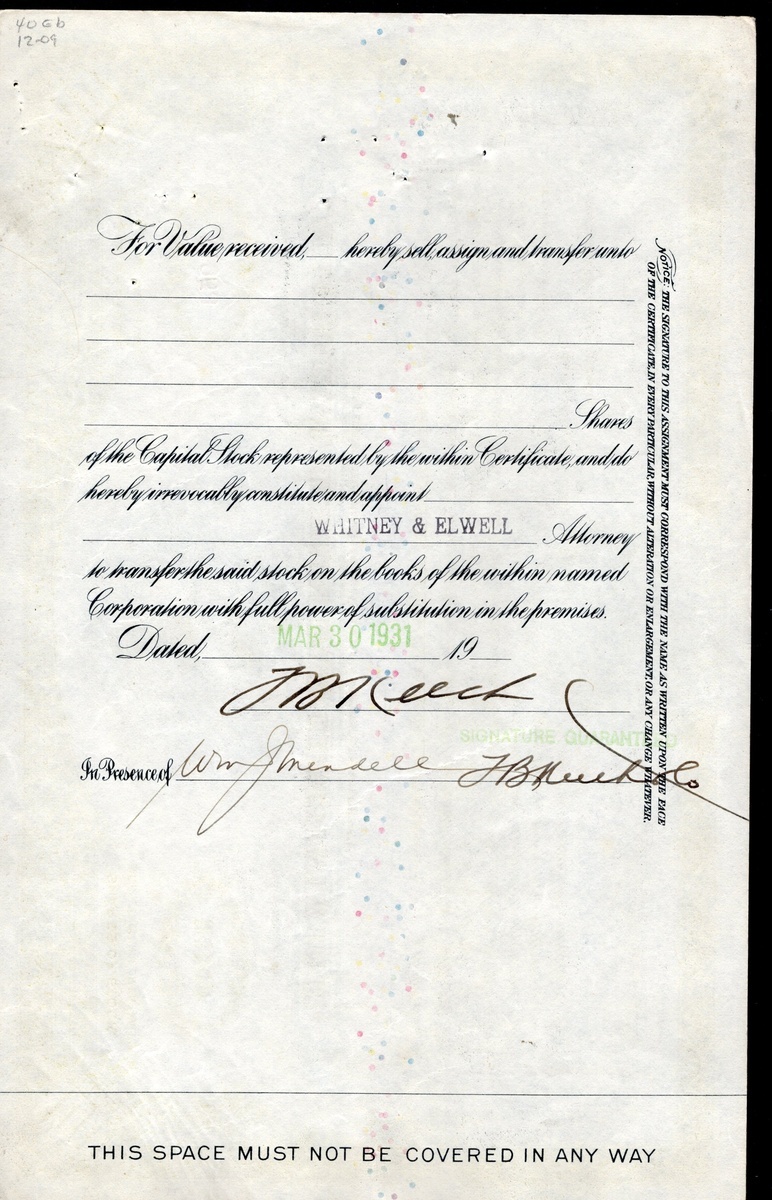 40Gb
12-09
For Value received, hereby sell, assign and transfer unto
Shares
of the Capital Stock represented by the within Certificate, and do
hereby irrevocably constitute and appoint
WHITNEY & ELWELL Attorney
to transfer the said stock on the books of the within named
Corporation with full power of substitution in the premises.
Dated, MAR 30 1931 19
F B Keech
SIGNATURE GUARANTEED
In Presence of Wm J Mendell F B Keech & Co
NOTICE: THE SIGNATURE TO THIS ASSIGNMENT MUST CORRESPOND WITH THE NAME AS WRITTEN UPON THE FACE
OF THE CERTIFICATE, IN EVERY PARTICULAR, WITHOUT ALTERATION OR ENLARGEMENT, OR ANY CHANGE WHATEVER.
THIS SPACE MUST NOT BE COVERED IN ANY WAY